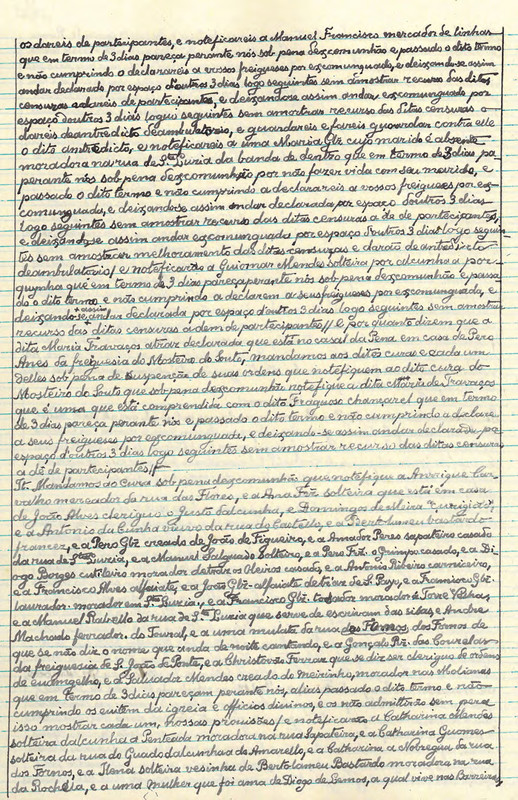 os dareis de partecipantes, e noteficareis a Manuel Francisco mercador de linhas
que em termo de 3 dias pareça perante nós sob pena dexcomunhão e passado o dito termo
e não cumprindo o declarareis a vossos freigueses por excomungado, e deixando-se assim
andar declarado por espaço doutros 3 dias logo seguintes sem amostrar recurso das ditas
censuras o dareis de partecipantes, e deixandose assim andar excomungado por
espaço doutros 3 dias loguo seguintes sem amostrar recurso das ditas censuras o
dareis deantredicto deambulatorio, e guardareis e fareis guardar contra elle
o dito antredicto, e noteficareis a uma Maria Glz cujo marido é absente
moradora na rua de Sta Luzia da banda de dentro que em termo de 3 dias pa-
perante nós sob pena dexcomunhão por não fazer vida com seu marido, e
passado o dito termo e não cumprindo a declarareis a vossos freigueses por ex-
comungada, e deixando-se assim andar declarada por espaço doutros 3 dias
logo seguintes sem amostrar recurso das ditas censuras a de de partecipantes,
e deixando-se assim andar excomungada por espaço doutros 3 dias logo seguin
tes sem amostrar melhoramento das ditas censuras e darão de antredicto
deambulatorio/ e noteficarão a Guiomar Mendes solteira por alcunha a por-
quinha que em termo de 3 dias pareça perante nós sob pena dexcomunhão e passa
do o dito termo e não cumprindo a declarem a seus freigueses por excomungada, e
deixando-se + assim andar declarada por espaço doutros 3 dias logo seguintes sem amostrar
recurso das ditas censuras a dem de partecipantes// E por quanto dizem que a
dita Maria Travaços atraz declarada que está no casal da Pena em casa de Pero
Anes da freiguesia do Mosteiro de Souto, mandamos aos ditos curas e cada um
delles sob pena de suspenção de suas ordens que notefiquem ao dito cura do
Mosteiro de Souto que sob pena dexcomunhão notefique a dita Maria de Travaços
que é uma que está comprendida com o dito Fragoso chançarel que em termo
de 3 dias pareça perante nós e passado o dito termo e não cumprindo a declare
a seus freigueses por excomungada, e deixando-se assim andar declarada por
espaço doutros 3 dias logo seguintes sem amostrar recurso das ditas censuras
a dê de partecipantes//
It. Mandamos ao cura sob pena dexcomunhão que notefique a Anrique Car-
valho mercador da rua das Flores, e a Ana Frz solteira que está em casa
de João Alves clerigo o Justo dalcunha, e Domingos de Meira
e a Antonio da Cunha viuvo da rua do Castello, e a Bertolameu bastardo
francez, e a Pero Glz creado de João de Figueiro, e a Amador Peres sapateiro casado
da rua de Sta Luzia, e a Manuel Salgado solteiro, e a Pero Frz. o Grimpo casado, e a Di-
ogo Borges cutileiro morador detraz os Oleiros casado, e a Antonio Ribeiro carniceiro,
e a Francisco Alves alfaiate, e a João Glz. alfaiate detraz de S. Payo, e a Francisco Glz.
laurador morador em Sta Luzia, e a Francisco Glz. tosador morador á Torre Velha,
e a Manuel Rabello da rua de Sta Luzia que serve de escrivam das sisas, e Andre
Machado ferrador do Toural, e a uma mulata da rua dos Fornos dos Fornos de
que se não diz o nome que anda de noite cantando, e a Gonçalo Piz. das Courelas
da freiguesia de S. João de Ponte, e a Christovão Ferraz que se diz ser clerigo de ordens
de euangelho, e a Salvador Mendes creado do Meirinho, morador nas Molianas
que em termo de 3 dias pareçam perante nós, alias passado o dito termo e não
cumprindo os evitem da igreia e officios divinos, e os não admittirão sem pera
isso mostrar cada um, nossas provisões/ e noteficarão a Catharina Mendes
solteira dalcunha a Penteada moradora na rua Sapateira, e a Catharina Guomes
solteira da rua do Guado dalcunha a de Amarello, e a Catharina a Nobregua da rua
dos Fornos, e a Ilena solteira vesinha de Bertolameu Bastardo moradora na rua
da Rochella, e a uma mulher que foi ama de Diogo de Lemos, a qual vive nas Barreiras,